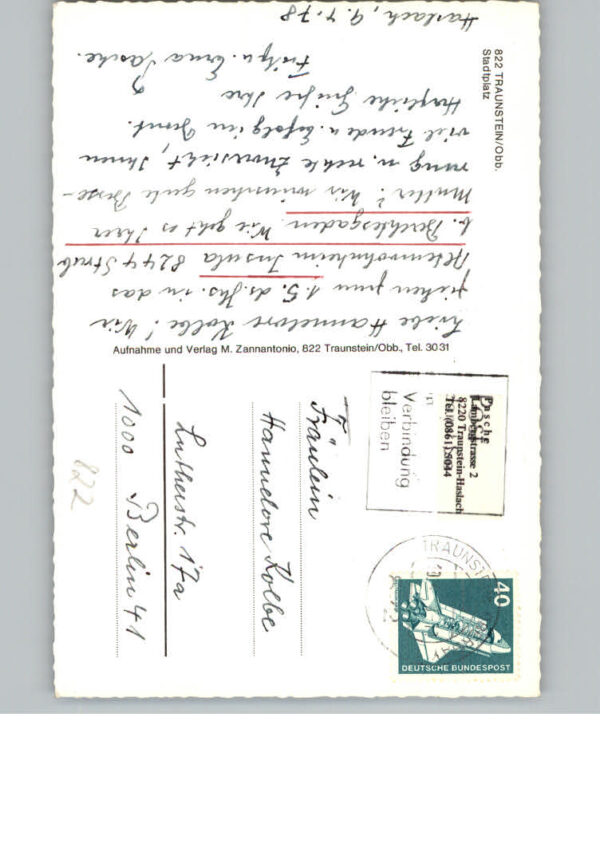 822 TRAUNSTEIN/Obb.
Stadtplatz
Haslach, 9.4.78
Liebe Hannelore Kolbe! Wir
ziehen zum 15. ds. Js. in das
Altenwohnheim Insula 8244 Strub
b. Berchtesgaden. Wie geht es Ihrer
Mutter? Wir wünschen gute Besse-
rung u. rechte Zuversicht, Ihnen
viel Freude u. Erfolg im Beruf.
Herzliche Grüße Ihre
Fritz u. Erna Pasche.
Aufnahme und Verlag M. Zannantonio, 822 Traunstein/Obb., Tel. 3031
Pasche
Lambergstrasse 2
8220 Traunstein-Haslach
Tel. (0861) 5044
in
Verbindung
bleiben
TRAUNST
40
DEUTSCHE BUNDESPOST
Fräulein
Hannelore Kolbe
Lutherstr. 17a
1000 Berlin 41
822